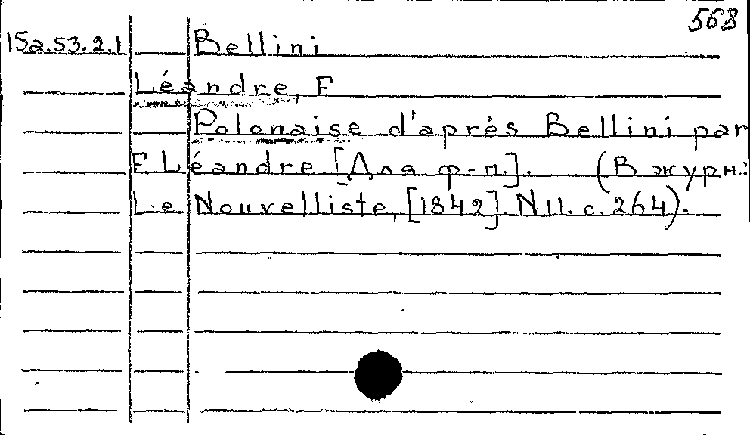 568
15a.53.2.1 Bellini
Léandre, F
Polonaise d'après Bellini par
F. Léandre [Для ф-п.]. (В журн.:
Le Nouvelliste, [1842]. N11. с. 264).